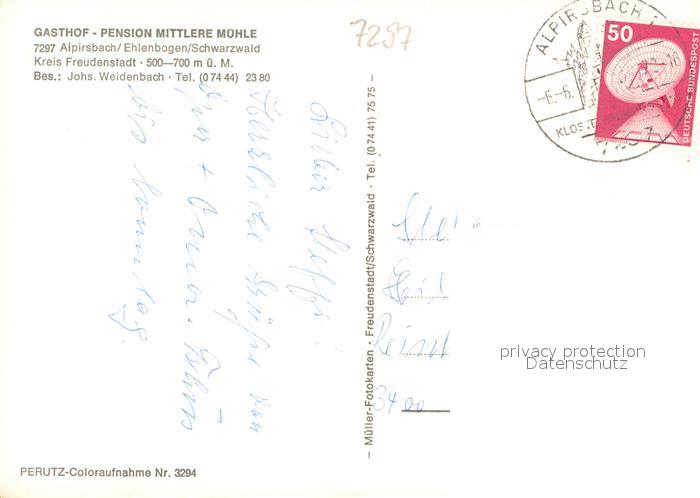 GASTHOF - PENSION MITTLERE MÜHLE
7297 Alpirsbach/Ehlenbogen/Schwarzwald
Kreis Freudenstadt · 500—700 m ü. M.
Bes.: Johs. Weidenbach · Tel. (0 74 44) 23 80
7297
ALPIRSBACH
-6.-6.
KLOSTER
50
DEUTSCHE BUNDESPOST
Lieber Steffi!
Herzliche Grüße von
Opa + Oma.
bis Sonntag.
— Müller-Fotokarten · Freudenstadt/Schwarzwald · Tel. (0 74 41) 75 75 —
3400
privacy protection
Datenschutz
PERUTZ-Coloraufnahme Nr. 3294